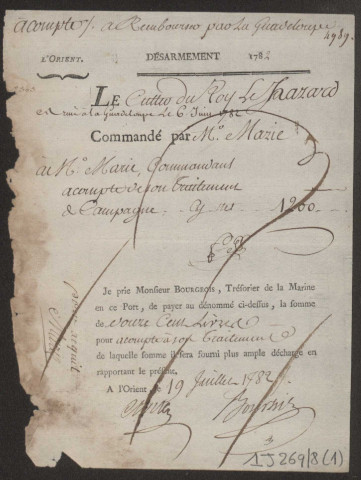 acompte / a Rembourser par la Guadeloupe
4989.
L'ORIENT. DÉSARMEMENT 1782
LE Cutter du Roy Le hazard
armé a la Guadeloupe Le 6 Juin 1782
Commandé par Mr. Marie
a Mr. Marie, Commandant
acompte de son traitement
de Campagne 1200
Je prie Monsieur BOURGEOIS, Trésorier de la Marine
en ce Port, de payer au dénommé ci-dessus, la somme
de douze Cent Livres
pour acompte à son traitement
de laquelle somme il sera fourni plus ample décharge en
rapportant le présent.
A l'Orient, le 19 Juillet 1782.
pour acquit
Marie
1J269/8(1)